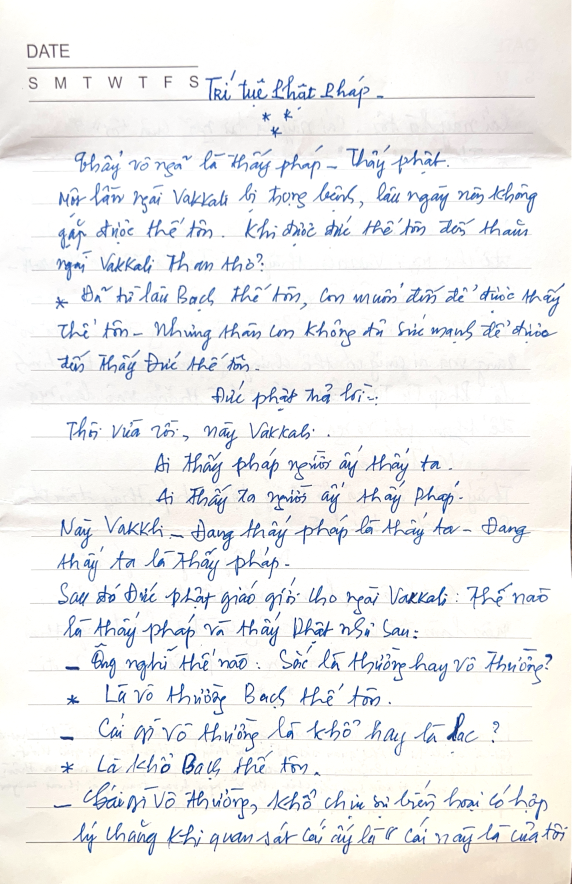 DATE
S M T W T F S
Trí tuệ Phật Pháp -
* * *
Thấy vô ngã là thấy pháp - Thấy phật.
Một lần ngài Vakkali bị trọng bệnh, lâu ngày nên không
gặp được thế tôn. Khi được đức thế tôn đến thăm
ngài Vakkali Than thở?
* Đã từ lâu Bạch thế tôn, con muốn đến để được thấy
Thế tôn - Nhưng thân con không đủ sức mạnh để được
đến Thấy Đức thế tôn.
Đức phật trả lời:
Thôi vừa rồi, này Vakkali.
Ai thấy pháp người ấy thấy ta.
Ai Thấy ta người ấy thấy Pháp.
Này Vakkli - Đang thấy pháp là thấy ta - Đang
thấy ta là thấy pháp.
Sau đó Đức phật giáo giới cho ngài Vakkali: Thế nào
là thấy pháp và thấy Phật như sau:
- Ông nghĩ thế nào: Sắc là thường hay vô Thường?
* Là vô thường Bạch thế tôn.
- Cái gì vô thường là khổ hay là lạc?
* Là khổ Bạch thế tôn.
- Cái gì vô thường, khổ chịu sự biến hoại có hợp
lý chăng khi quan sát cái ấy là " cái này là của tôi